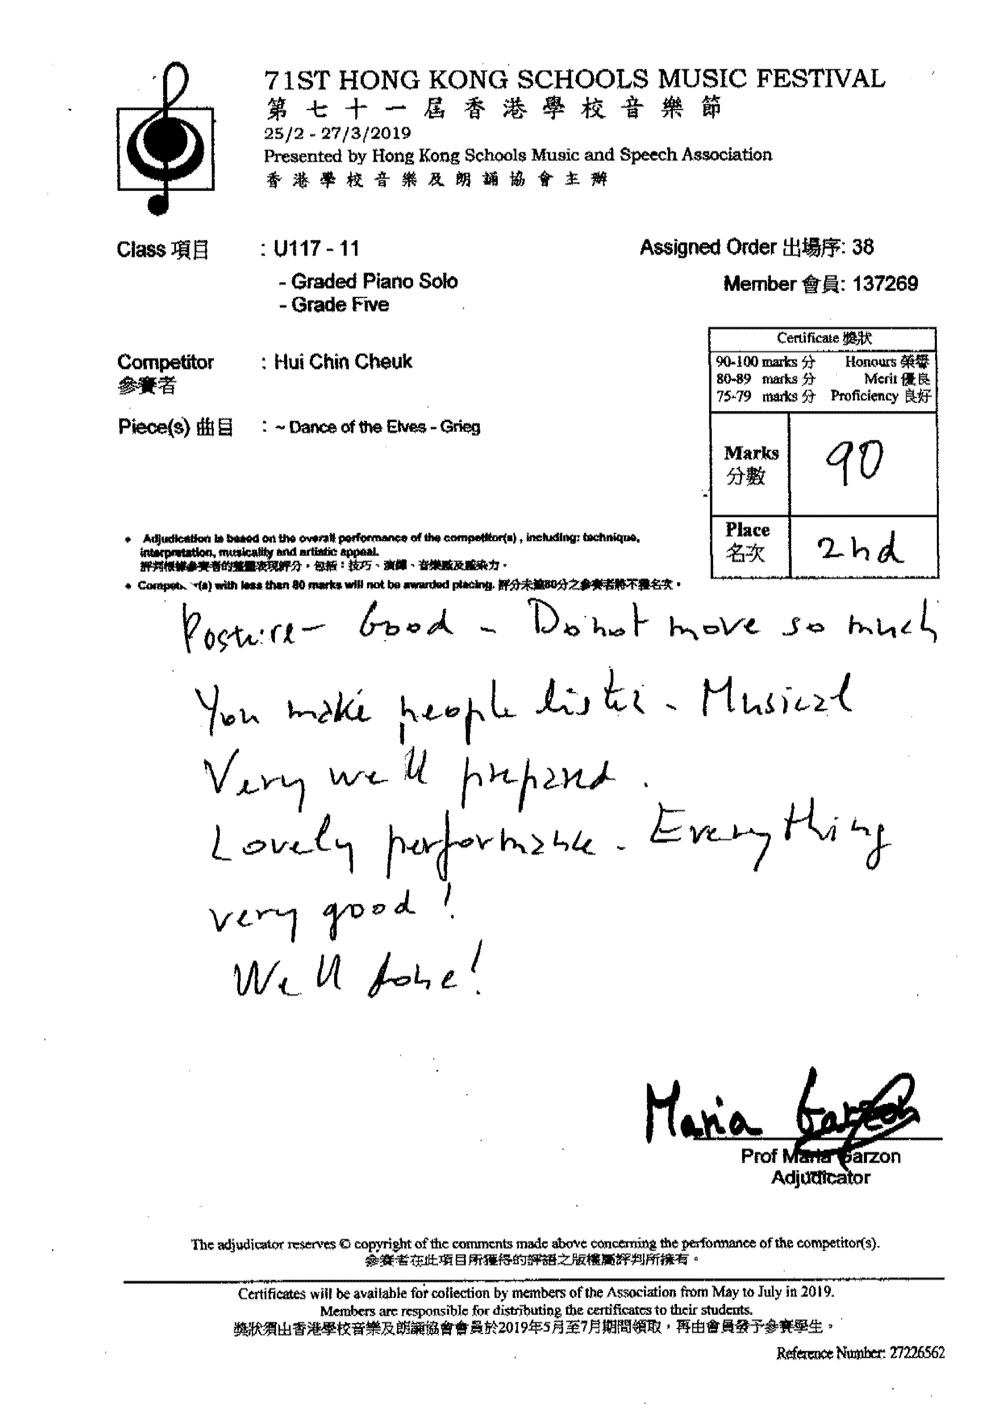 71ST HONG KONG SCHOOLS MUSIC FESTIVAL
第七十一屆香港學校音樂節
25/2 - 27/3/2019
Presented by Hong Kong Schools Music and Speech Association
香港學校音樂及朗誦協會主辦
Class 項目 : U117 - 11
- Graded Piano Solo
- Grade Five
Assigned Order 出場序: 38
Member 會員: 137269
Competitor : Hui Chin Cheuk
參賽者
Piece(s) 曲目 : ~ Dance of the Elves - Grieg
Certificate 獎狀
90-100 marks 分 Honours 榮譽
80-89 marks 分 Merit 優良
75-79 marks 分 Proficiency 良好
Marks 分數 90
Place 名次 2nd
• Adjudication is based on the overall performance of the competitor(s) , including: technique,
interpretation, musicality and artistic appeal.
評判根據參賽者的整體表現評分，包括：技巧、演繹、音樂感及感染力。
• (s) with less than 80 marks will not be awarded placing. 評分未達80分之參賽者將不獲名次。
Posture - Good - Do not move so much
You make people listen - Musical
Very well prepared.
Lovely performance. Everything
very good!
Well done!
Maria Garzon
Prof Maria Garzon
Adjudicator
The adjudicator reserves © copyright of the comments made above concerning the performance of the competitor(s).
參賽者在此項目所獲得的評語之版權屬評判所擁有。
Certificates will be available for collection by members of the Association from May to July in 2019.
Members are responsible for distributing the certificates to their students.
獎狀須由香港學校音樂及朗誦協會會員於2019年5月至7月期間領取，再由會員發予參賽學生。
Reference Number: 27226562